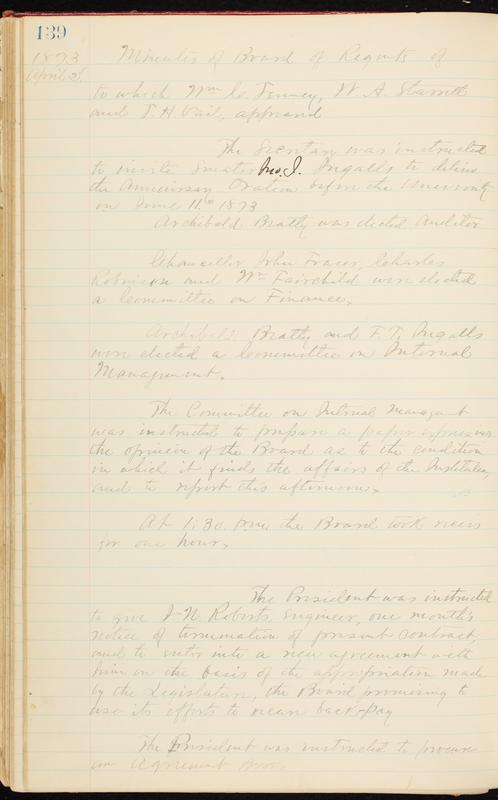 139
1873
April 2
Minutes of Board of Regents of
to which Wm C. Tenney, W. A Starrett
and T. H Vail, appeared
The Secretary was instructed
to invite Senator Jno. J. Ingalls to deliver
the Anniversary Oration before the University
on June 11th 1873
Archibald Beatty was elected Auditor
Chancellor John Fraser, Charles
Robinson and Wm Fairchild were elected
a Committee on Finance.
Archibald Beatty and F. T. Ingalls
were elected a Committee on Internal
Management.
The Committee on Internal Managemt
was instructed to prepare a paper expressive
the opinion of the Board as to the condition
in which it finds the affairs of the Institution,
and to report this afternoon.
At 1:30 P.M. the Board took recess
for one hour.
The President was instructed
to give J. N. Roberts, Engineer, one month's
notice of termination of present contract,
and to enter into a new agreement with
him on the basis of the appropriation made
by the Legislature, the Board promising to
use its efforts to secure back-pay
The President was instructed to procure
an Agreement